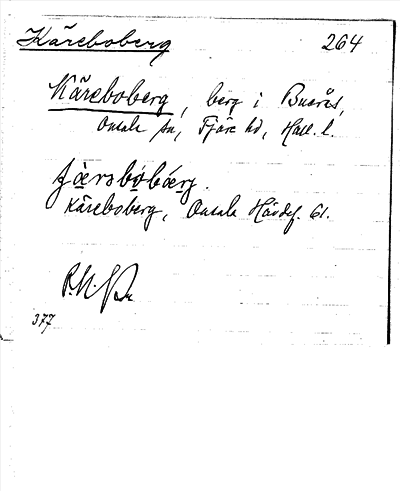 Käreboberg 264
Käreboberg, berg i Buarås,
Onsala sn, Fjäre hd, Hall. l.
Käreboberg, Onsala Hävdef. 61.
377